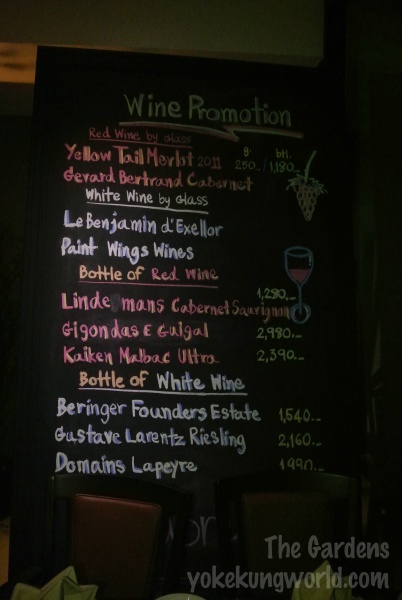 Wine Promotion
Red Wine by glass g. btl.
Yellow Tail Merlot 2011 250.-/1,180
Gerard Bertrand Cabernet
White Wine by Glass
Le Benjamin d'Exellor
Paint Wings Wines
Bottle of Red Wine
1,280.-
Linde mans Cabernet Sauvignon
Gigondas E Guigal 2,980.-
Kaiken Malbac Ultra 2,390.-
Bottle of White Wine
Beringer Founders Estate 1,540.-
Gustave Larentz Riesling 2,160.-
Domains Lapeyre 1,990.-
The Gardens
yokekungworld.com